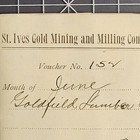 St. Ives Gold Mining and Milling Com
Voucher No. 152
Month of June
Goldfield Lumber